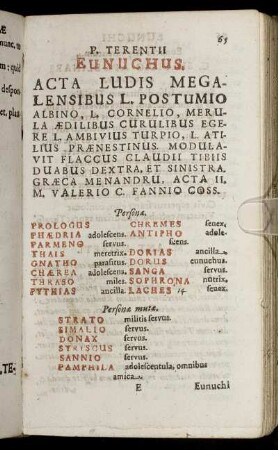 65
P. TERENTII
EUNUCHUS.
ACTA LUDIS MEGA-
LENSIBUS L. POSTUMIO
ALBINO, L. CORNELIO, MERU-
LA ÆDILIBUS CURULIBUS EGE-
RE L. AMBIVIUS TURPIO, L. ATI-
LIUS PRÆNESTINUS. MODULA-
VIT FLACCUS CLAUDII TIBIIS
DUABUS DEXTRA, ET SINISTRA.
GRÆCA MENANDRU. ACTA II.
M. VALERIO C. FANNIO COSS.
Personæ.
PROLOGUS CHREMES senex.
PHÆDRIA adolescens. ANTIPHO adole-
PARMENO servus. scens.
THAIS meretrix. DORIAS ancilla.
GNATHO parasitus. DORUS eunuchus.
CHÆREA adolescens. SANGA servus.
THRASO miles. SOPHRONA nutrix.
PYTHIAS ancilla. LACHES senex.
Personæ mutæ.
STRATO militis servus.
SIMALIO servus.
DONAX servus.
SYRISCUS servus.
SANNIO servus.
PAMPHILA adolescentula, omnibus
amica.
E Eunuchi